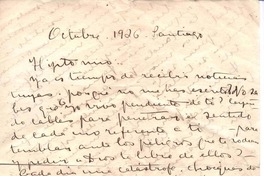 Octubre 1926 Santiago
Hijito mío:
Ya es tiempo de recibir noticias
tuyas. ¿por qué no me has escrito? No sa-
bes que estoy pendiente de ti?
de cables para penetrar el sentido
de cada uno referente a ti para
temblar ante los peligros que te rodean
y pedir a Dios te libre de ellos?
Cada día una catástrofe, choques de